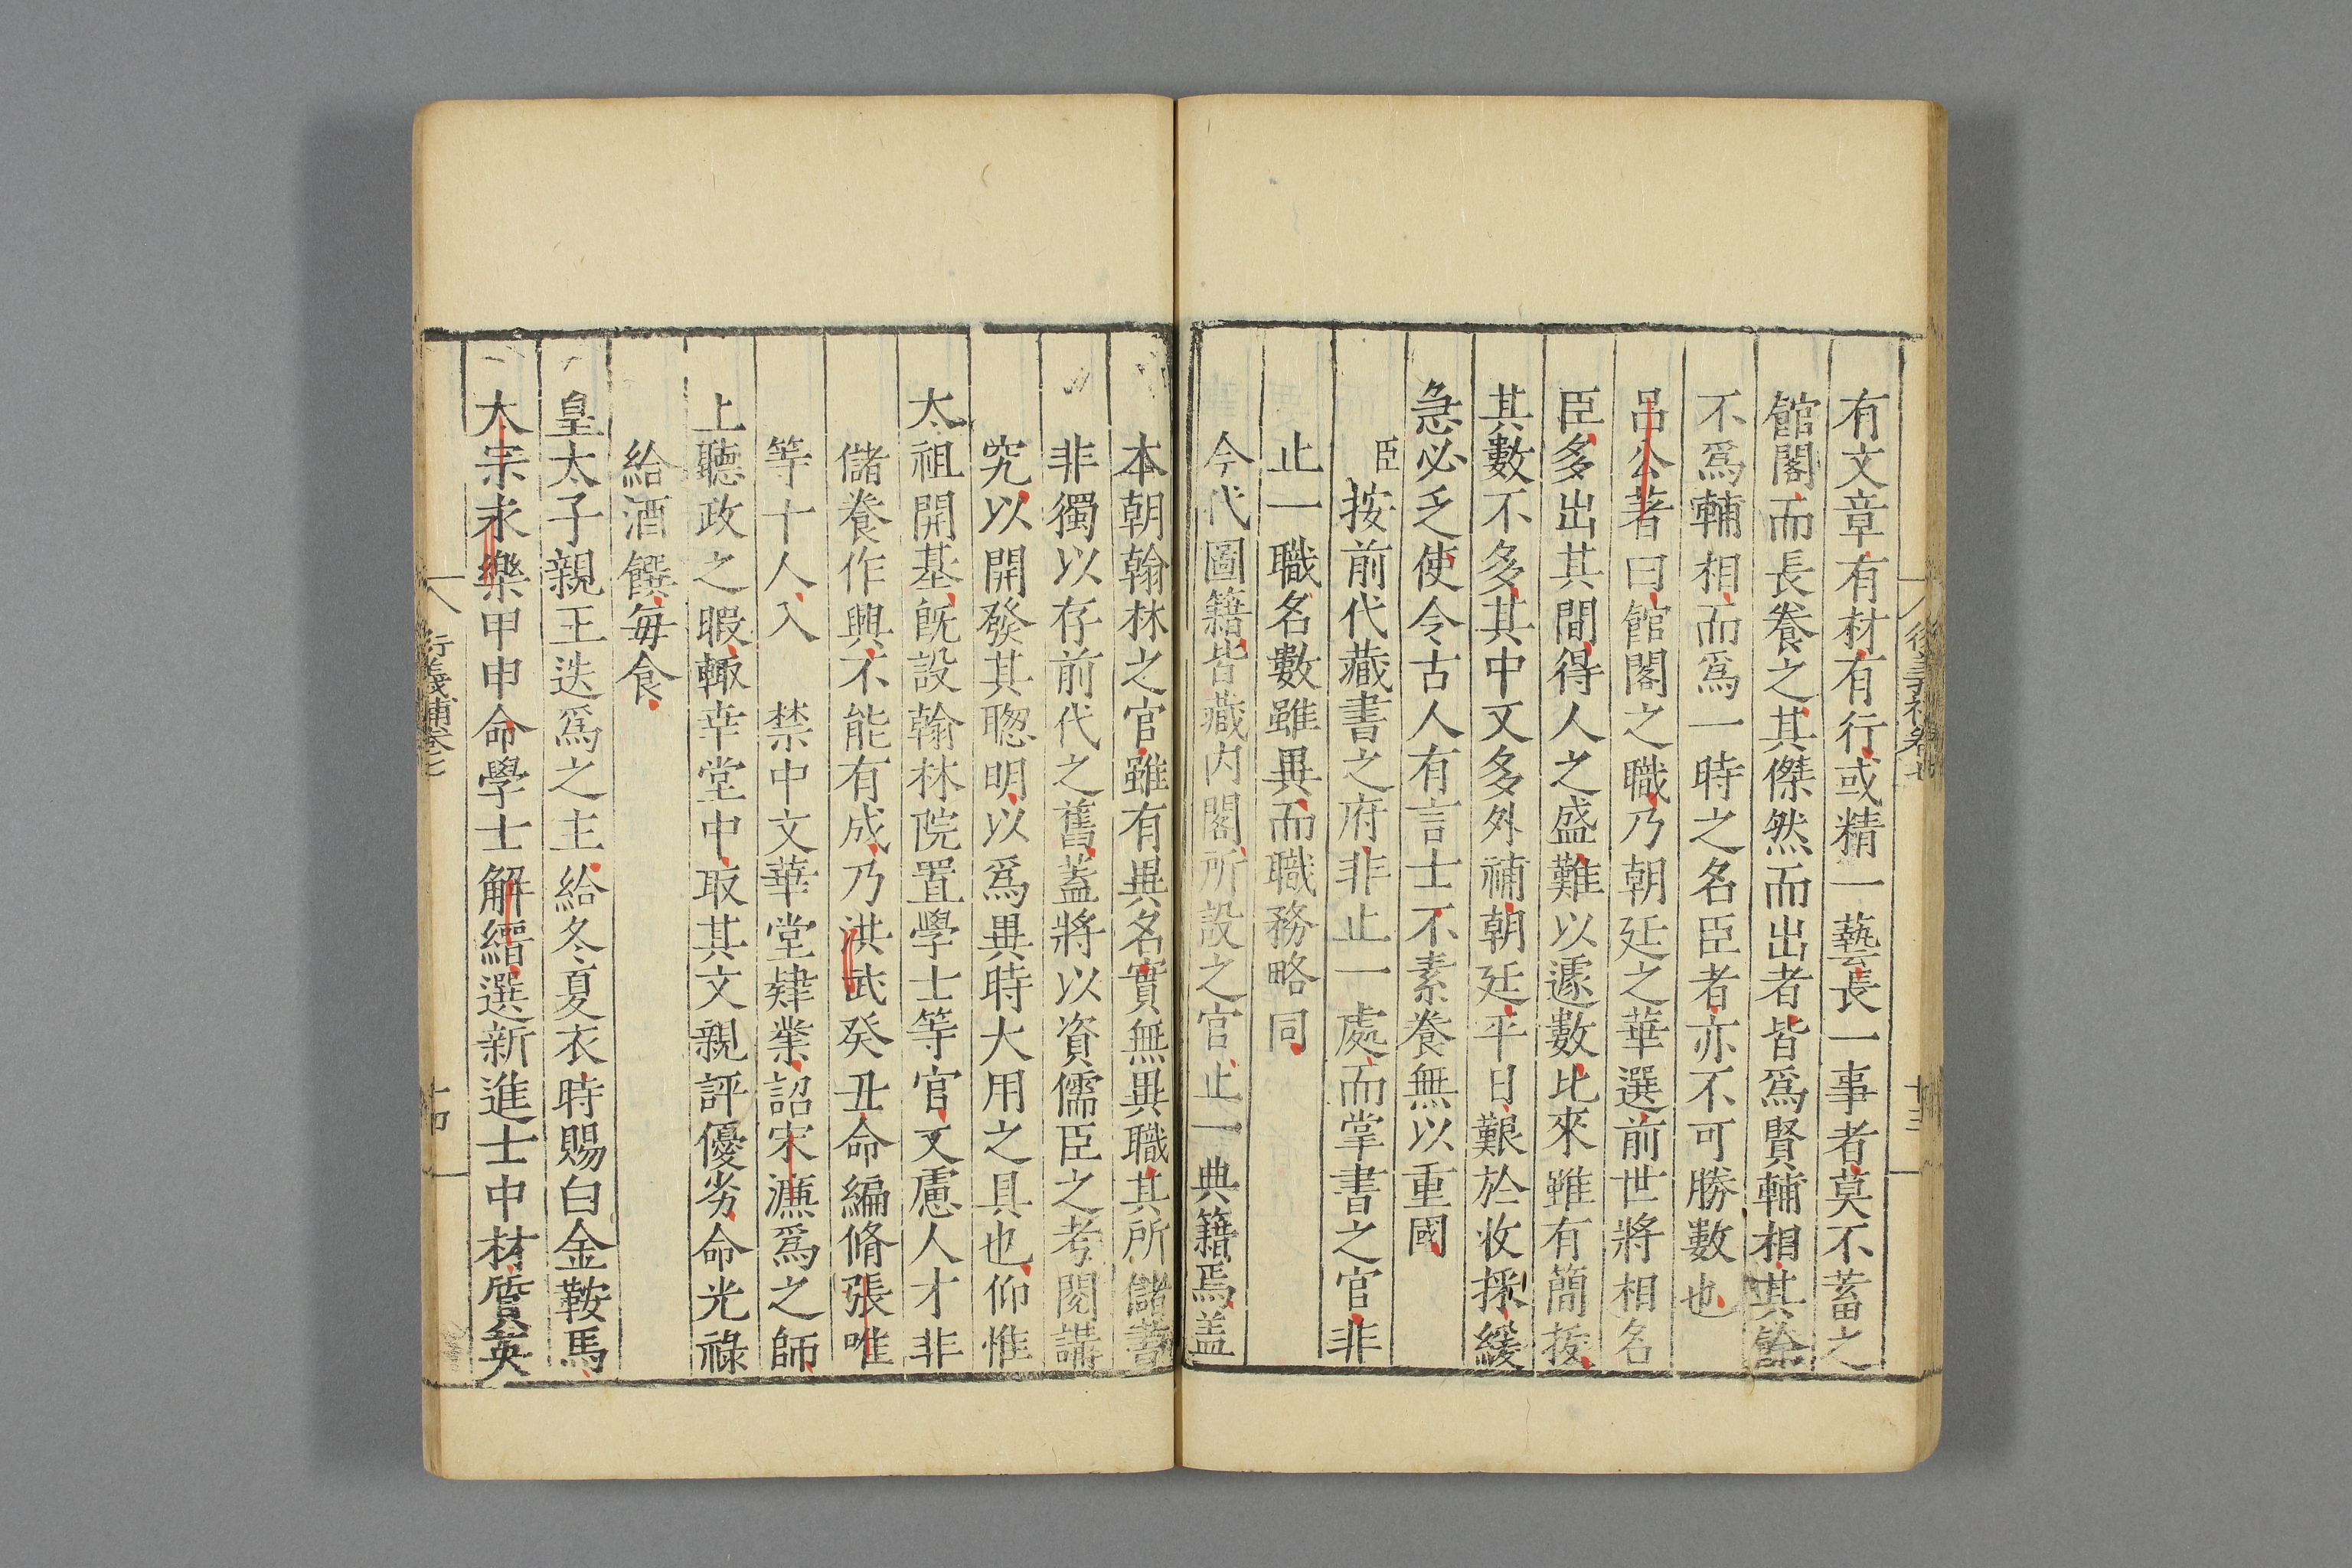 有文章有材有行或精一藝長一事者莫不蓄之
館閣而長養之其傑然而出者皆爲賢輔相其餘
不爲輔相而爲一時之名臣者亦不可勝數也
呂公著曰館閣之職乃朝廷之華選前世將相名
臣多出其間得人之盛難以遽數比來雖有簡拔
其數不多其中又多外補朝廷平日艱於收採緩
急必乏使令古人有言士不素養無以重國
臣按前代藏書之府非止一處而掌書之官非
止一職名數雖異而職務略同
今代圖籍皆藏内閣所設之官止一典籍焉盖
本朝翰林之官雖有異名實無異職其所儲書
非獨以存前代之舊蓋將以資儒臣之考閱講
究以開發其聰明以爲異時大用之具也仰惟
太祖開基既設翰林院置學士等官又慮人才非
儲養作興不能有成乃洪武癸丑命編脩張唯
等十人入 禁中文華堂肄業詔宋濂爲之師
上聽政之暇輙幸堂中取其文親評優劣命光祿
給酒饌每食
皇太子親王迭爲之主給冬夏衣時賜白金鞍馬
太宗永樂甲申命學士解縉選新進士中材質英
行義補卷七
十四